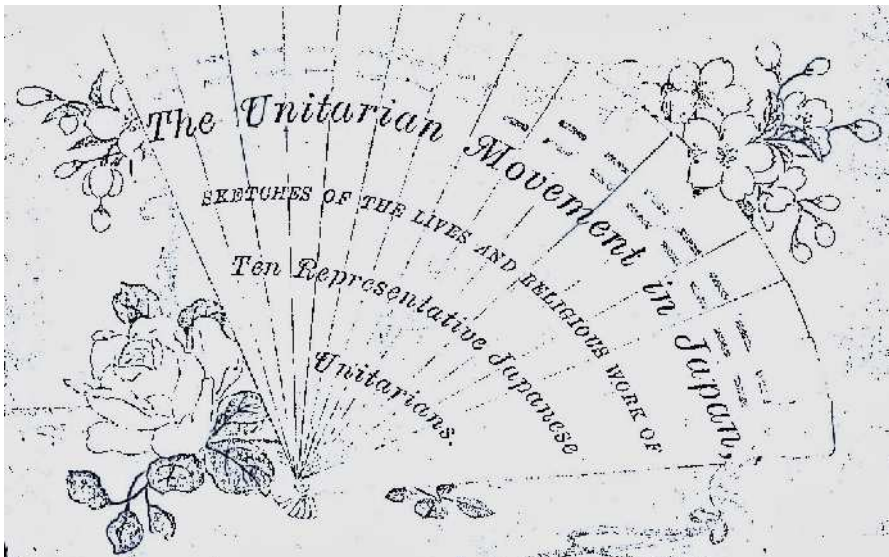 The Unitarian Movement in Japan,
SKETCHES OF THE LIVES AND RELIGIOUS WORK OF
Ten Representative Japanese
Unitarians.